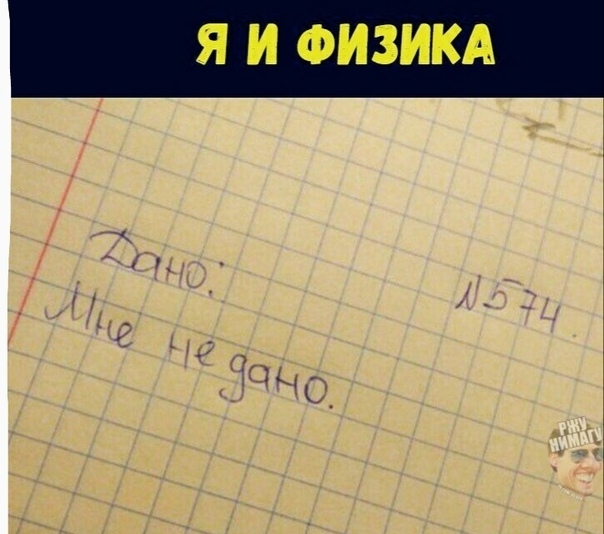 Я И ФИЗИКА
№574.
Дано:
Мне не дано.
РЖУ
НИМАГУ